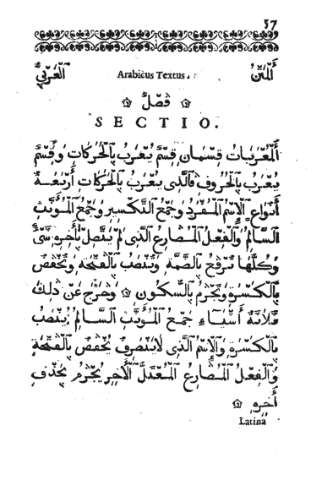 57
المتن Arabicus Textus. العربي
۞ فصل ۞
SECTIO.
المعربات قسمان قسم يعرب بالحركات وقسم
يعرب بالحروف فالذي يعرب بالحركات أربعة
أنواع الاسم المفرد وجمع التكسير وجمع المؤنث
السالم والفعل المضارع الذي لم يتصل بآخره شيء
وكلها ترفع بالضمة وتنصب بالفتحة وتخفض
بالكسرة وتجزم بالسكون ۞ وخرج عن ذلك
ثلاثة أشياء جمع المؤنث السالم ينصب
بالكسرة والاسم الذي لا ينصرف يخفض بالفتحة
والفعل المضارع المعتل الآخر يجزم بحذف
آخره ۞
Latina